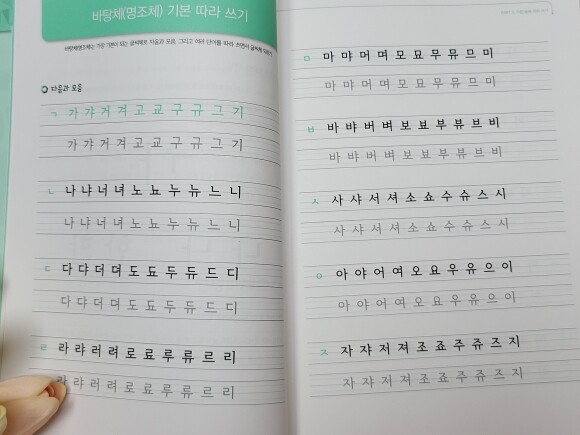 바탕체(명조체) 기본 따라 쓰기
바탕체(명조체)는 가장 기본이 되는 글씨체로 자음과 모음, 그리고 여러 단어를 따라 쓰면서 글씨체
자음과 모음
ㄱ 가 갸 거 겨 고 교 구 규 그 기
가 갸 거 겨 고 교 구 규 그 기
ㄴ 나 냐 너 녀 노 뇨 누 뉴 느 니
나 냐 너 녀 노 뇨 누 뉴 느 니
ㄷ 다 댜 더 뎌 도 됴 두 듀 드 디
다 댜 더 뎌 도 됴 두 듀 드 디
ㄹ 라 랴 러 려 로 료 루 류 르 리
라 랴 러 려 로 료 루 류 르 리
ㅁ 마 먀 머 며 모 묘 무 뮤 므 미
마 먀 머 며 모 묘 무 뮤 므 미
ㅂ 바 뱌 버 벼 보 뵤 부 뷰 브 비
바 뱌 버 벼 보 뵤 부 뷰 브 비
ㅅ 사 샤 서 셔 소 쇼 수 슈 스 시
사 샤 서 셔 소 쇼 수 슈 스 시
ㅇ 아 야 어 여 오 요 우 유 으 이
아 야 어 여 오 요 우 유 으 이
ㅈ 자 쟈 저 져 조 죠 주 쥬 즈 지
자 쟈 저 져 조 죠 주 쥬 즈 지